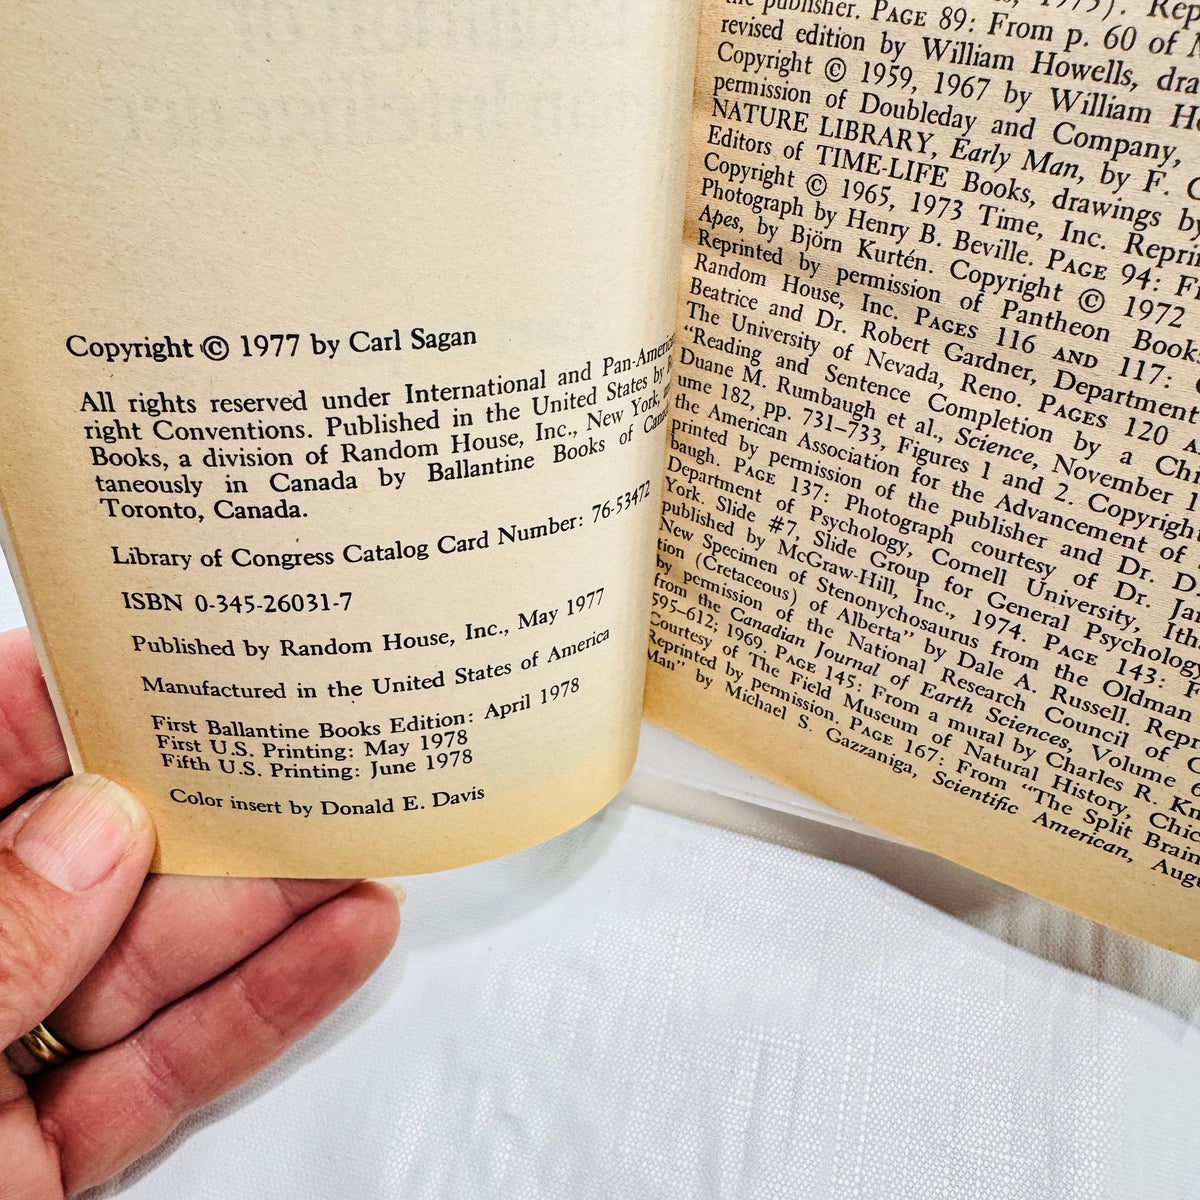 Copyright © 1977 by Carl Sagan
All rights reserved under International and
right Conventions. Published in the United States by
Books, a division of Random House, Inc., New York,
taneously in Canada by Ballantine Books of
Toronto, Canada.
Library of Congress Catalog Card Number: 76-53472
ISBN 0-345-26031-7
Published by Random House, Inc., May 1977
Manufactured in the United States of America
First Ballantine Books Edition: April 1978
First U.S. Printing: May 1978
Fifth U.S. Printing: June 1978
Color insert by Donald E. Davis
the publisher. PAGE 89: From p. 60 of
revised edition by William Howells,
Copyright © 1959, 1967 by William
permission of Doubleday and Company,
NATURE LIBRARY, Early Man, by F.
Editors of TIME-LIFE Books, drawings by
Copyright © 1965, 1973 Time, Inc.
Photograph by Henry B. Beville. PAGE 94:
Apes, by Björn Kurtén. Copyright © 1972
Reprinted by permission of Pantheon
Random House, Inc. PAGES 116 AND 117:
Beatrice and Dr. Robert Gardner, Department
The University of Nevada, Reno. PAGES 120
"Reading and Sentence Completion by a
Duane M. Rumbaugh et al., Science, November
ume 182, pp. 731–733, Figures 1 and 2. Copyright
the American Association for the Advancement of
printed by permission of the publisher and Dr.
baugh. PAGE 137: Photograph courtesy of Dr.
Department of Psychology, Cornell University,
York. Slide #7, Slide Group for General Psychology
published by McGraw-Hill, Inc., 1974. PAGE 143:
New Specimen of Stenonychosaurus from the Oldman
tion (Cretaceous) of Alberta" by Dale A. Russell.
by permission of the National Research Council of
from the Canadian Journal of Earth Sciences, Volume
595–612; 1969. PAGE 145: From a mural by Charles R.
Courtesy of The Field Museum of Natural History,
Reprinted by permission. PAGE 167: From "The Split Brain
Man" by Michael S. Gazzaniga, Scientific American,